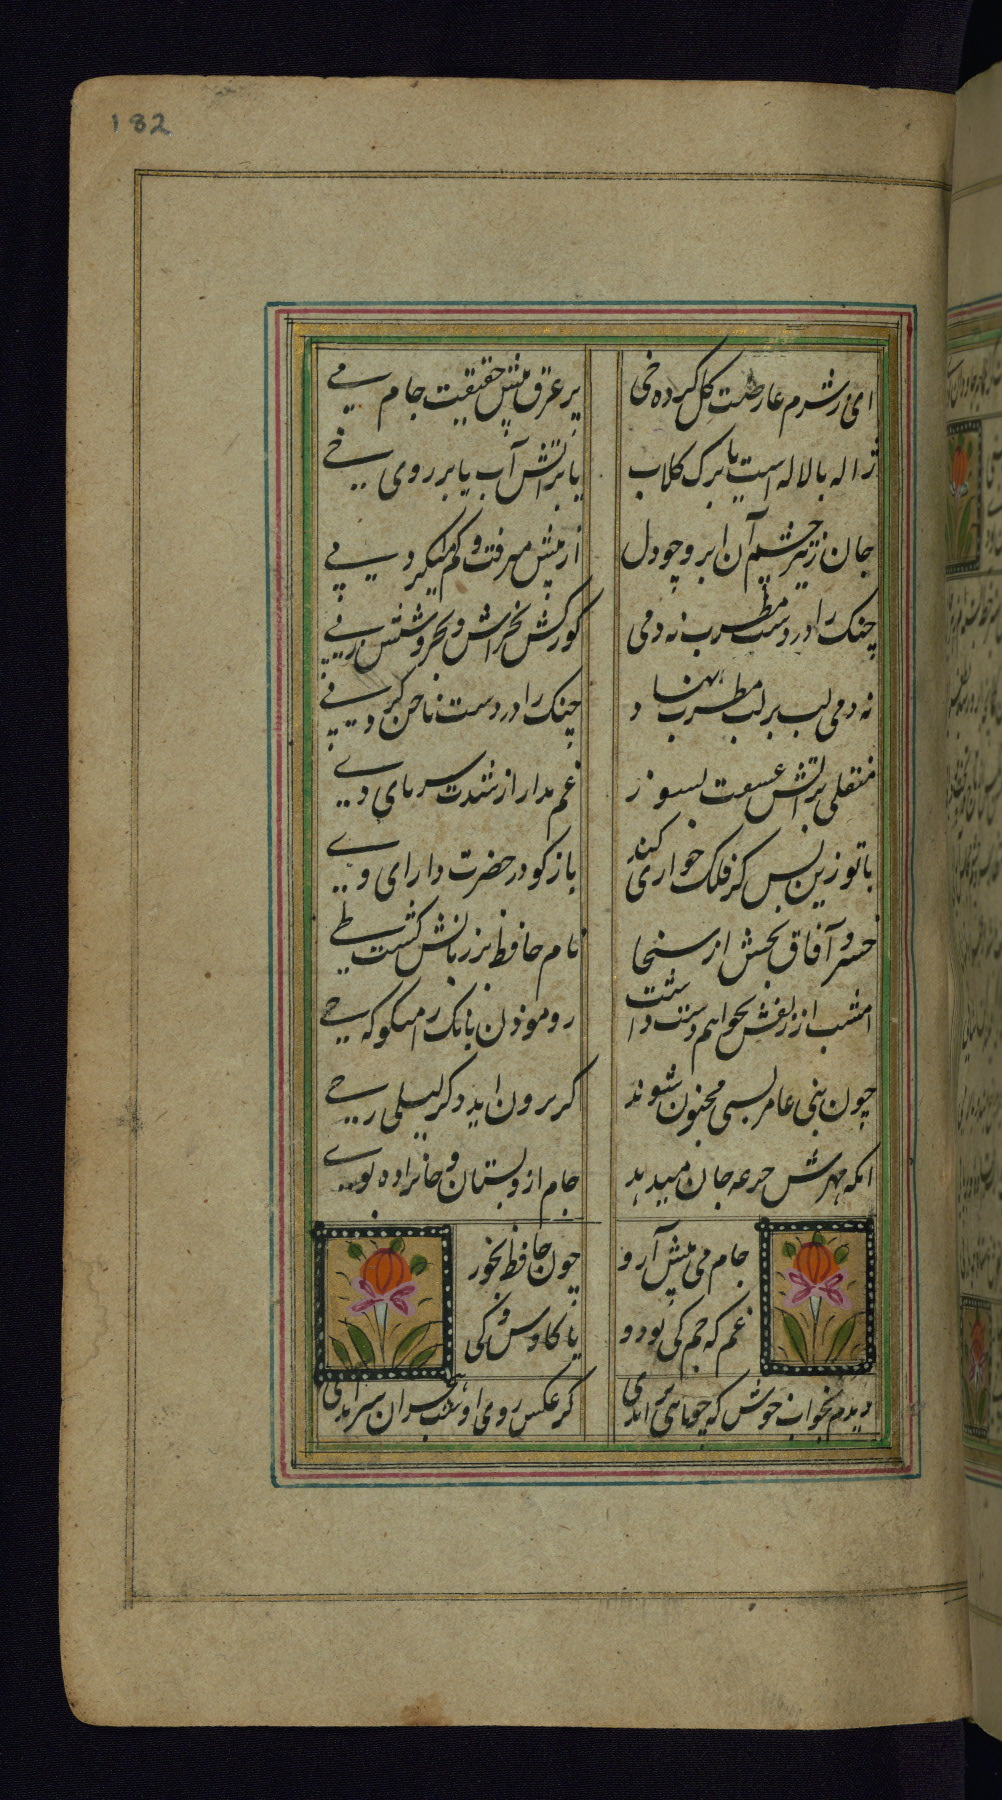 182
ای ز شرم عارضت گل کرده خی
پر عرق پیش حقیقت جام می
ژاله بالاله است یا برگ گلاب
یا بر آتش آب یا بر روی خی
جان ز تیر چشم آن ابرو چو دل
از پیش میرفت و گم میگردید پی
چنگ را در دست مطرب نه دمی
گو رگش بخراش و بخروشش ز پی
نه دمی لب بر لب مطرب نهاد
چنگ را در دست ناخن کرد نی
منقلی بر آتش بسوز
غم مدار از شدت سرمای دی
با تو زین پس گر فلک خواری کند
باز گو در حضرت دارای ری
خسرو آفاق بخش از سخا
نام حافظ بر زبانش گشت طی
امشب از زلفش بخواهم دست داشت
رو موذن بانگ را میگو که حی
چون بنی عامر بسی مجنون شوند
گر برون اید دگر لیلی ز حی
انکه بهرش جرعه جان میدهد
جام از و بستان و جانرا ده بوی
جام می پیش آر و
چون حافظ بخور
غم که جم کی بود و
یا کاوس و کی
دیدم بخواب خوش که چو ماهی بر امدی
کز عکس روی او شب هجران سر امدی